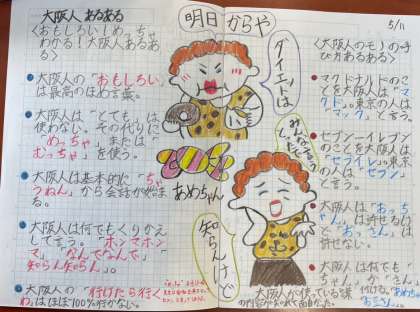 大阪人 あるある
〈おもしろい！めっちゃ
わかる！大阪人あるあ
る〉
大阪人の「おもしろい」
は最高のほめ言葉。
大阪人は「とても」は
使わない。その代りに
「めっちゃ」または
「むっちゃ」を使う。
大阪人は基本的に「ち
ゃうねん」から会話が始ま
る。
大阪人は何でもくりかえ
して言う。「ホンマホン
マ」「なんでなんで」
「知らん知らん」。
大阪人の「行けたら行く
わ」はほぼ100％行かない。
明日からや
ダイエットは
あめちゃん
みんな言うてた
知らんけど
5/11
〈大阪人のモノの呼
び方あるある〉
マクドナルドのこ
とを大阪人は「マ
クド」。東京の人は
「マック」と言う。
セブンイレブン
のことを大阪人は
「セブイレ」。東京
の人は「セブン」
と言う。
大阪人は「おっち
ゃん」は許せるけ
ど「おっさん」は
許せない。
大阪人は何でも
「ちゃん」か「さん」
付ける。「あめちゃん」
大阪人が使っている言葉